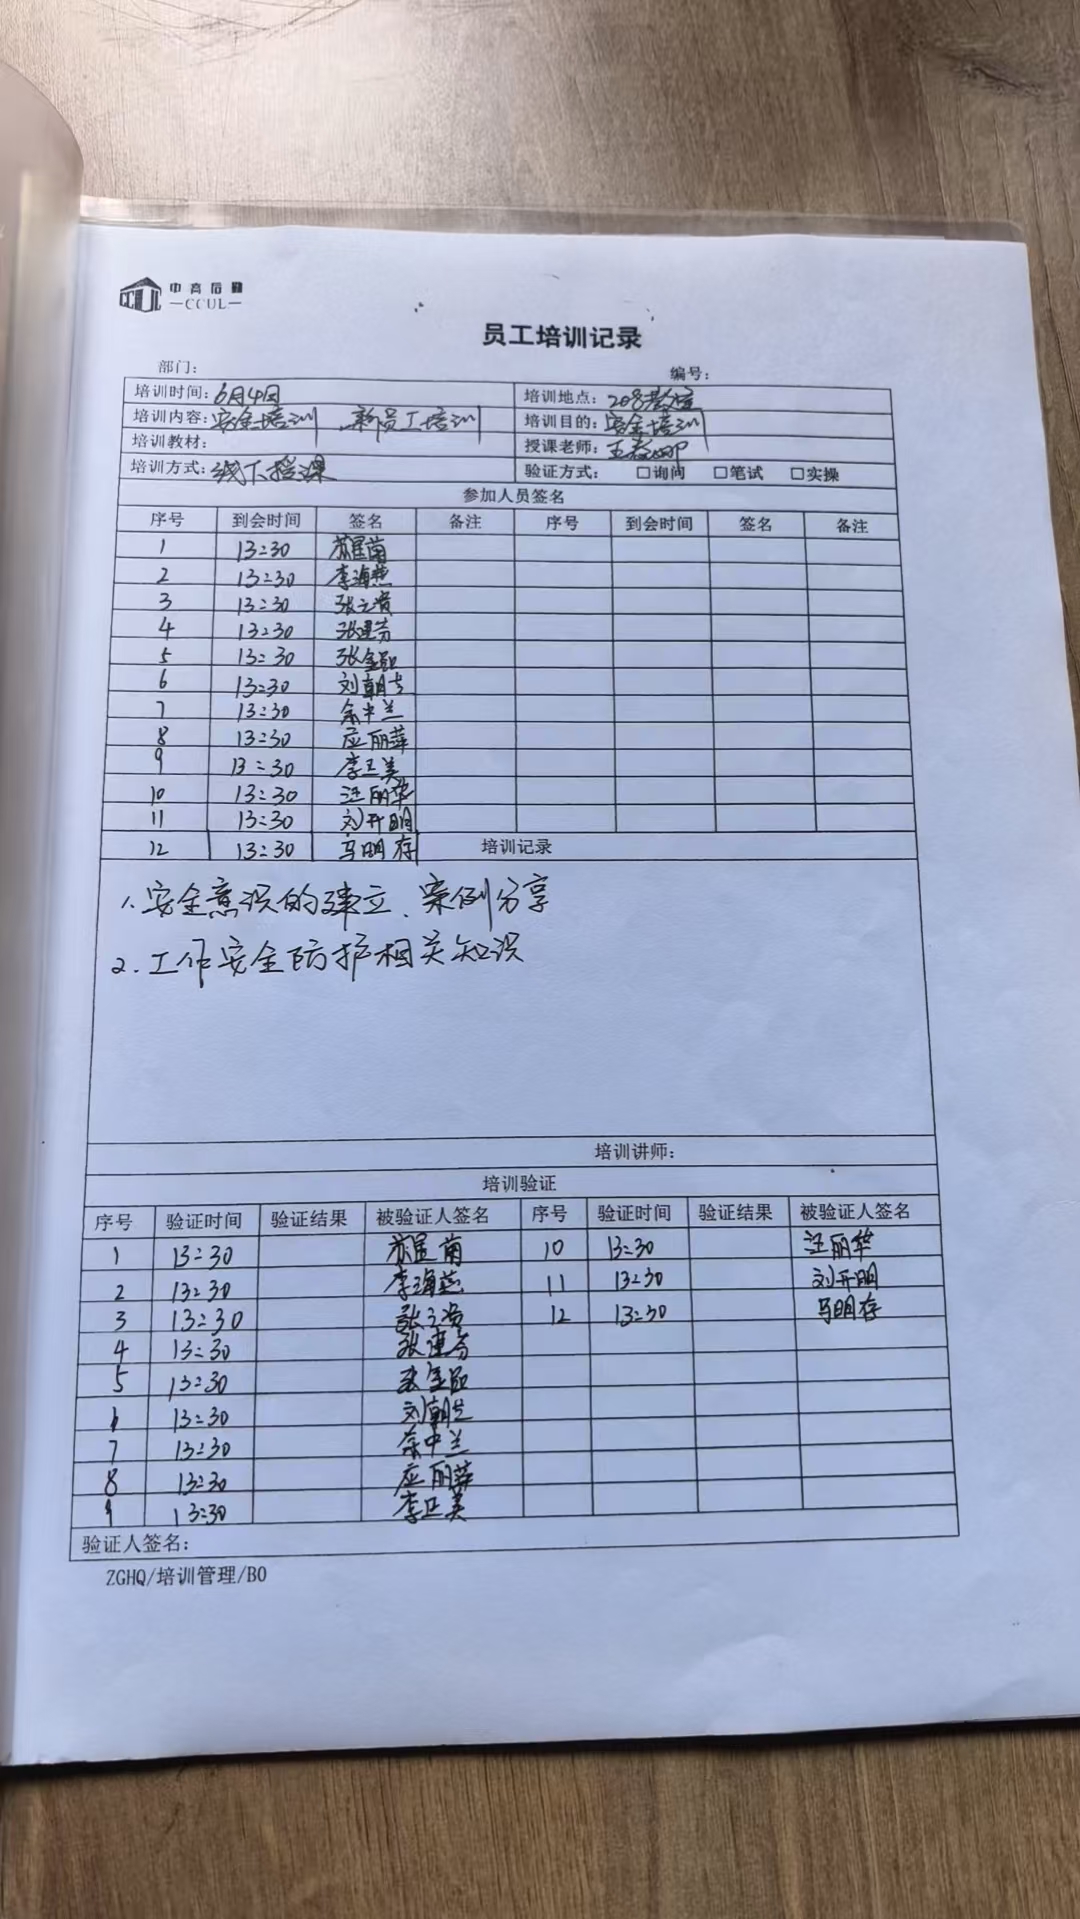 中高后勤
CCUL
—CCUL—
员工培训记录
部门: 编号:
培训时间: 6月4日 培训地点: 208教室
培训内容: 安全培训、新员工培训 培训目的: 安全培训
培训教材: 授课老师: 王春娜
培训方式: 线下授课 验证方式: □询问 □笔试 □实操
参加人员签名
序号 到会时间 签名 备注 序号 到会时间 签名 备注
1 13:30
2 13:30 李海燕
3 13:30
4 13:30
5 13:30
6 13:30
7 13:30 余中兰
8 13:30 应丽萍
9 13:30 李卫美
10 13:30 汪丽华
11 13:30 刘开明
12 13:30 马明存 培训记录
1.安全意识的建立、案例分享
2.工作安全防护相关知识
培训讲师:
培训验证
序号 验证时间 验证结果 被验证人签名 序号 验证时间 验证结果 被验证人签名
1 13:30 10 13:30 汪丽华
2 13:30 李海燕 11 13:30 刘开明
3 13:30 12 13:30 马明存
4 13:30
5 13:30
6 13:30
7 13:30 余中兰
8 13:30 应丽萍
9 13:30 李卫美
验证人签名:
ZGHQ/培训管理/B0